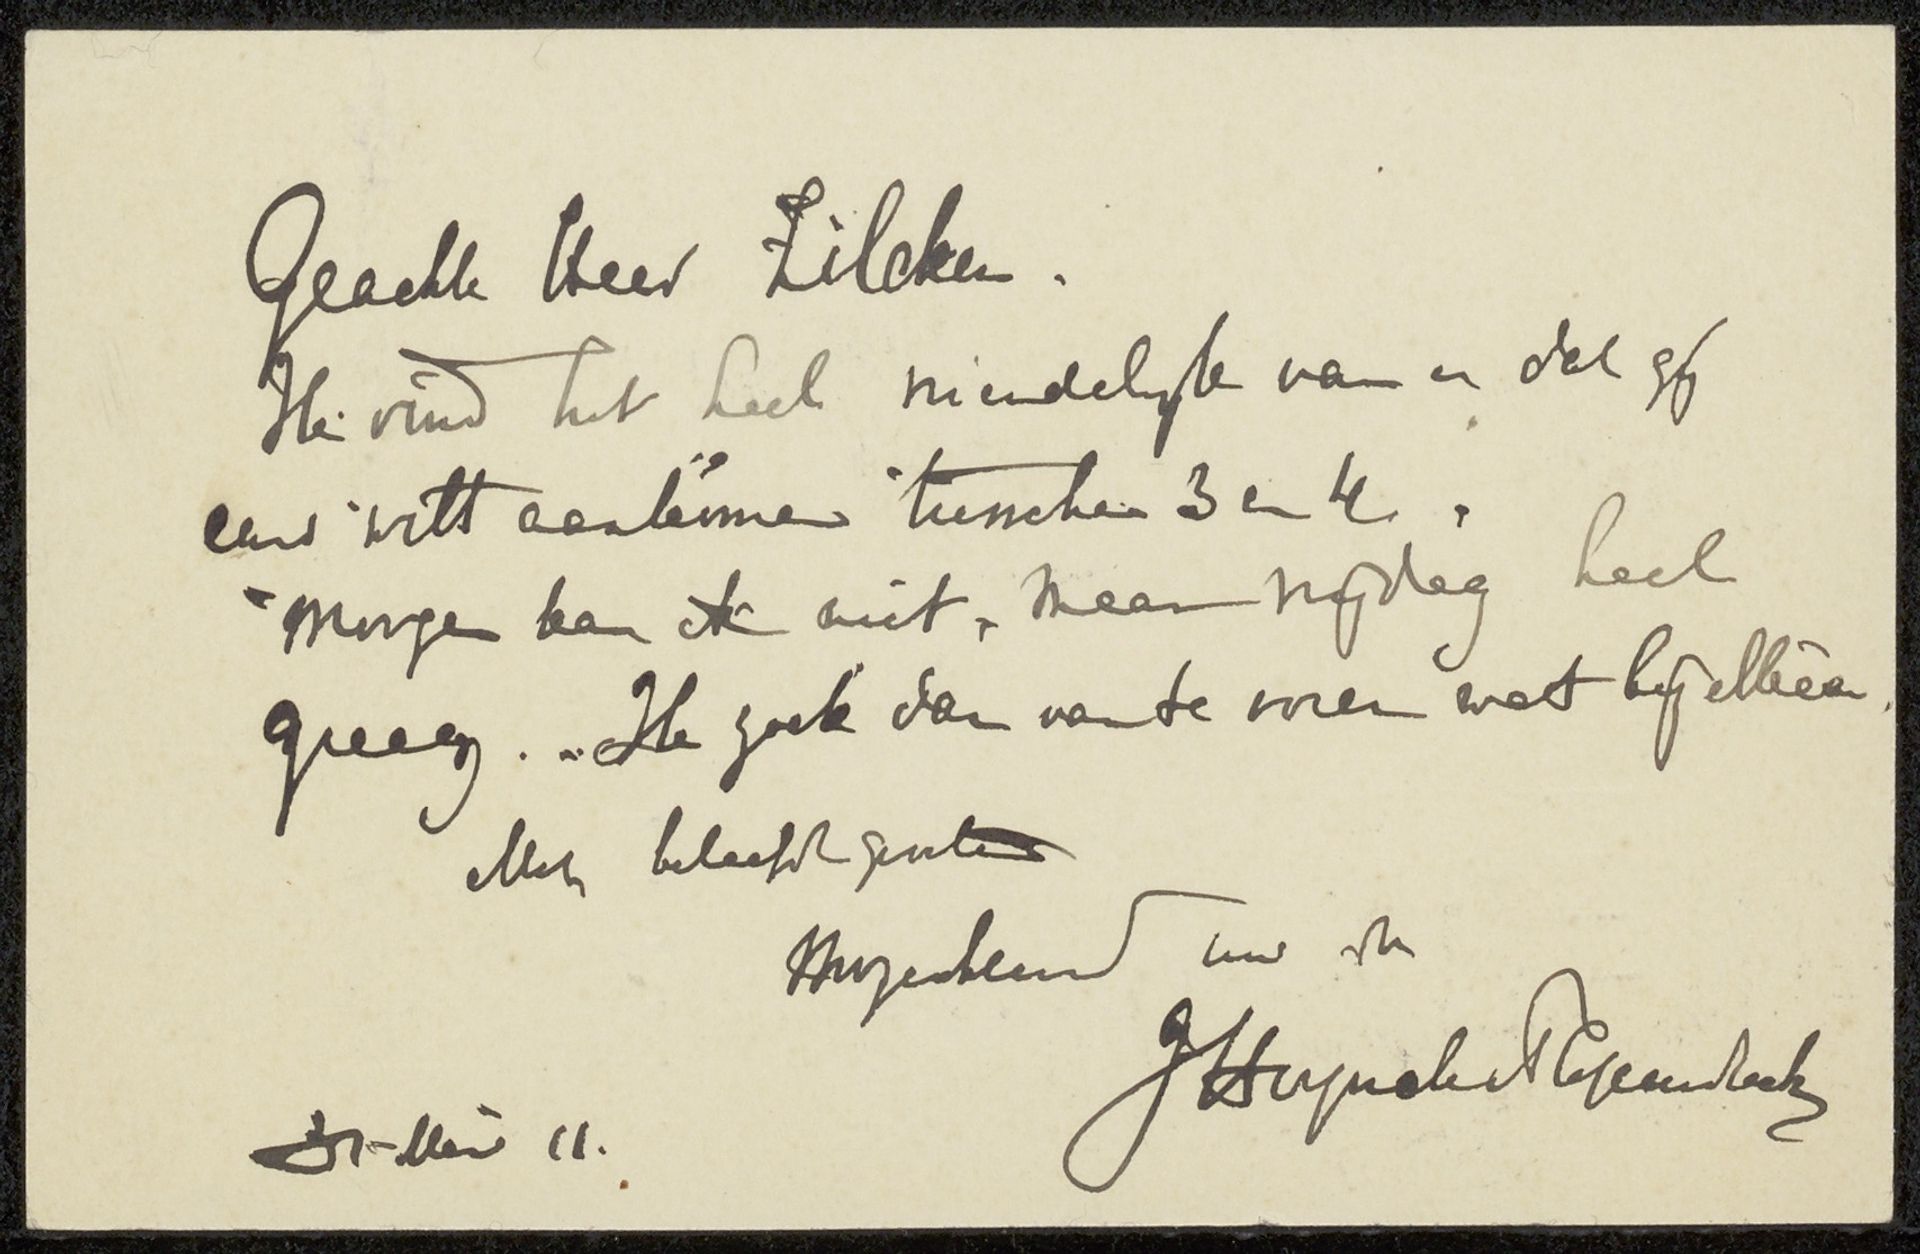 Geachte Heer Zilcken.
Ik vind het heel vriendelijk van u dat gij
eens wilt aankomen tusschen 3 en 4.
Morgen kan ik niet, maar vrijdag heel
graag. Ik zoek dan van te voren wat bij elkaar.
Met beleefde groeten
Hoogachtend uw dn
G Haverman
31 Mei 11.